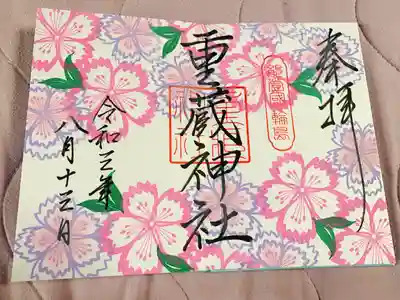 奉拝
能登國輪島
重蔵神社
令和三年
八月十三日